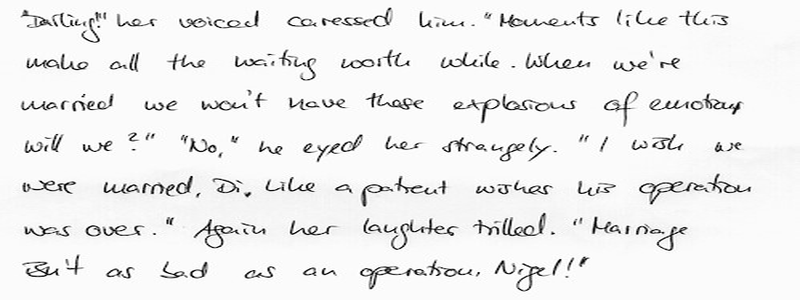 "Darling" her voiced caressed him. "Moments like this
make all the waiting worth while. When we're
married we won't have these explosions of emotions
will we?" "No," he eyed her strangely. "I wish we
were married, Di. Like a patient wishes his operation
was over." Again her laughter trilled. "Marriage
isn't as bad as an operation, Nigel!"